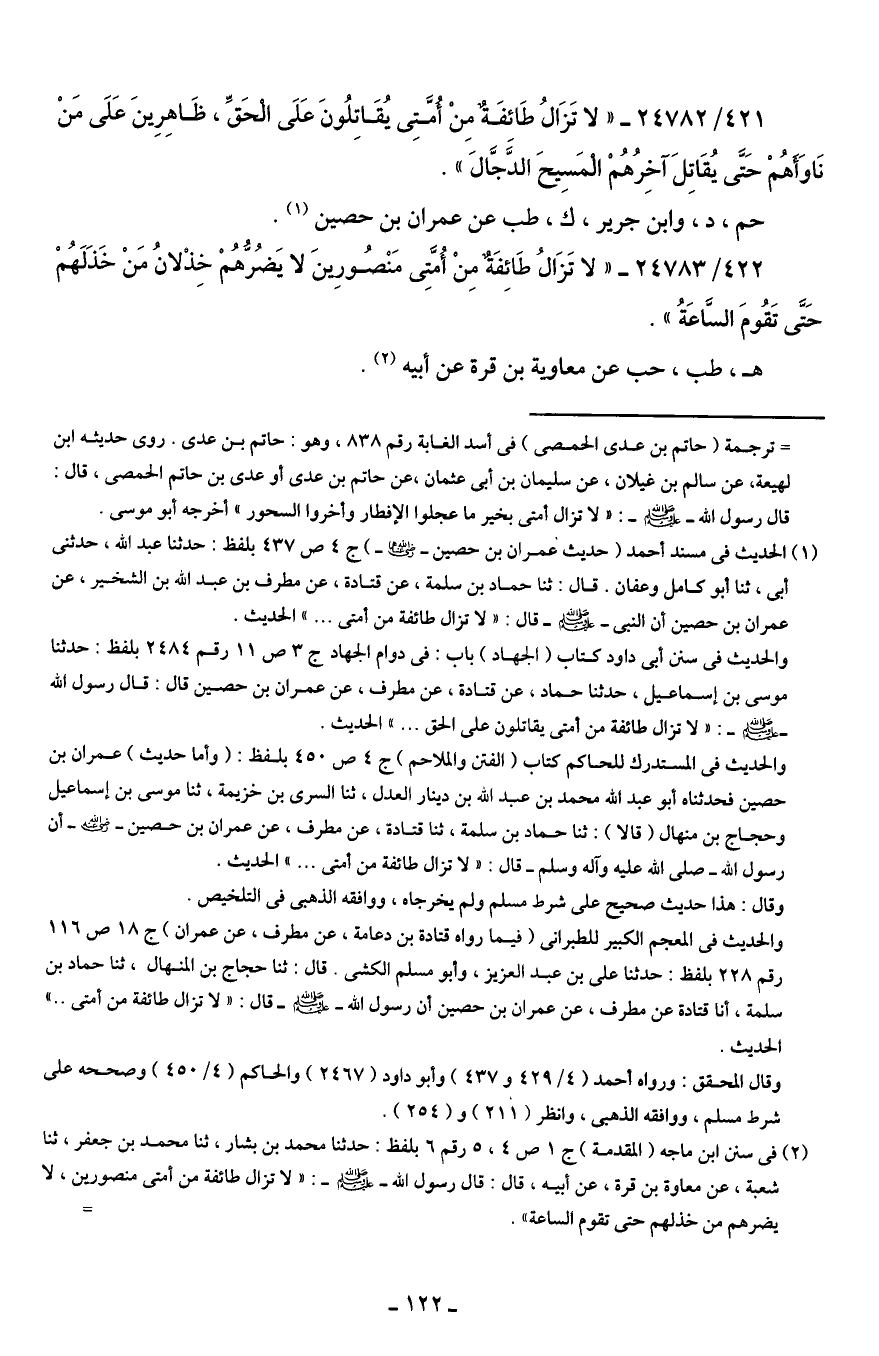 ٤٢١/ ٢٤٧٨٢ ـ « لا تَزَالُ طَائِفَةٌ مِنْ أُمَّتِى يُقَاتِلُونَ عَلَى الْحَقِّ ، ظَاهِرِينَ عَلَى مَنْ
نَاوَأَهُمْ حَتَّى يُقَاتِلَ آخِرُهُمْ الْمَسِيحَ الدَّجَّالَ » .
حم ، د ، وابن جرير ، ك ، طب عن عمران بن حصين (١) .
٤٢٢/ ٢٤٧٨٣ ـ « لا تَزَالُ طَائِفَةٌ مِنْ أُمَّتِى مَنْصُورِينَ لا يَضُرُّهُمْ خِذْلانُ مَنْ خَذَلَهُمْ
حَتَّى تَقُومَ السَّاعَةُ » .
هـ ، طب ، حب عن معاوية بن قرة عن أبيه (٢) .
= ترجمة ( حاتم بن عدى الحمصى ) فى أسد الغابة رقم ٨٣٨ ، وهو : حاتم بن عدى . روى حديثه ابن
لهيعة، عن سالم بن غيلان ، عن سليمان بن أبى عثمان ،عن حاتم بن عدى أو عدى بن حاتم الحمصى ، قال :
قال رسول الله ـ ﷺ ـ : « لا تزال أمتى بخير ما عجلوا الإفطار وأخروا السحور » أخرجه أبو موسى .
(١) الحديث فى مسند أحمد ( حديث عمران بن حصين ـ رضي الله عنه ـ ) ج ٤ ص ٤٣٧ بلفظ : حدثنا عبد الله ، حدثنى
أبى ، ثنا أبو كامل وعفان . قال : ثنا حماد بن سلمة ، عن قتادة ، عن مطرف بن عبد الله بن الشخير ، عن
عمران بن حصين أن النبى ـ ﷺ ـ قال : « لا تزال طائفة من أمتى ... » الحديث .
والحديث فى سنن أبى داود كتاب ( الجهاد ) باب : فى دوام الجهاد ج ٣ ص ١١ رقم ٢٤٨٤ بلفظ : حدثنا
موسى بن إسماعيل ، حدثنا حماد ، عن قتادة ، عن مطرف ، عن عمران بن حصين قال : قال رسول الله
ـ ﷺ ـ : « لا تزال طائفة من أمتى يقاتلون على الحق ... » الحديث .
والحديث فى المستدرك للحاكم كتاب ( الفتن والملاحم ) ج ٤ ص ٤٥٠ بلفظ : ( وأما حديث ) عمران بن
حصين فحدثناه أبو عبد الله محمد بن عبد الله بن دينار العدل ، ثنا السرى بن خزيمة ، ثنا موسى بن إسماعيل
وحجاج بن منهال ( قالا ) : ثنا حماد بن سلمة ، ثنا قتادة ، عن مطرف ، عن عمران بن حصين ـ رضي الله عنه ـ أن
رسول الله ـ صلى الله عليه وآله وسلم ـ قال : « لا تزال طائفة من أمتى ... » الحديث .
وقال : هذا حديث صحيح على شرط مسلم ولم يخرجاه ، ووافقه الذهبى فى التلخيص .
والحديث فى المعجم الكبير للطبرانى ( فيما رواه قتادة بن دعامة ، عن مطرف ، عن عمران ) ج ١٨ ص ١١٦
رقم ٢٢٨ بلفظ : حدثنا على بن عبد العزيز ، وأبو مسلم الكشى . قال : ثنا حجاج بن المنهال ، ثنا حماد بن
سلمة ، أنا قتادة عن مطرف ، عن عمران بن حصين أن رسول الله ـ ﷺ ـ قال : « لا تزال طائفة من أمتى .. »
الحديث .
وقال المحقق : ورواه أحمد ( ٤/ ٤٢٩ و ٤٣٧ ) وأبو داود ( ٢٤٦٧ ) والحاكم ( ٤/ ٤٥٠ ) وصححه على
شرط مسلم ، ووافقه الذهبى ، وانظر ( ٢١١ ) و ( ٢٥٤ ) .
(٢) فى سنن ابن ماجه ( المقدمة ) ج ١ ص ٤ ، ٥ رقم ٦ بلفظ : حدثنا محمد بن بشار ، ثنا محمد بن جعفر ، ثنا
شعبة ، عن معاوة بن قرة ، عن أبيه ، قال : قال رسول الله ـ ﷺ ـ : « لا تزال طائفة من أمتى منصورين ، لا
يضرهم من خذلهم حتى تقوم الساعة» . =
ـ ١٢٢ ـ